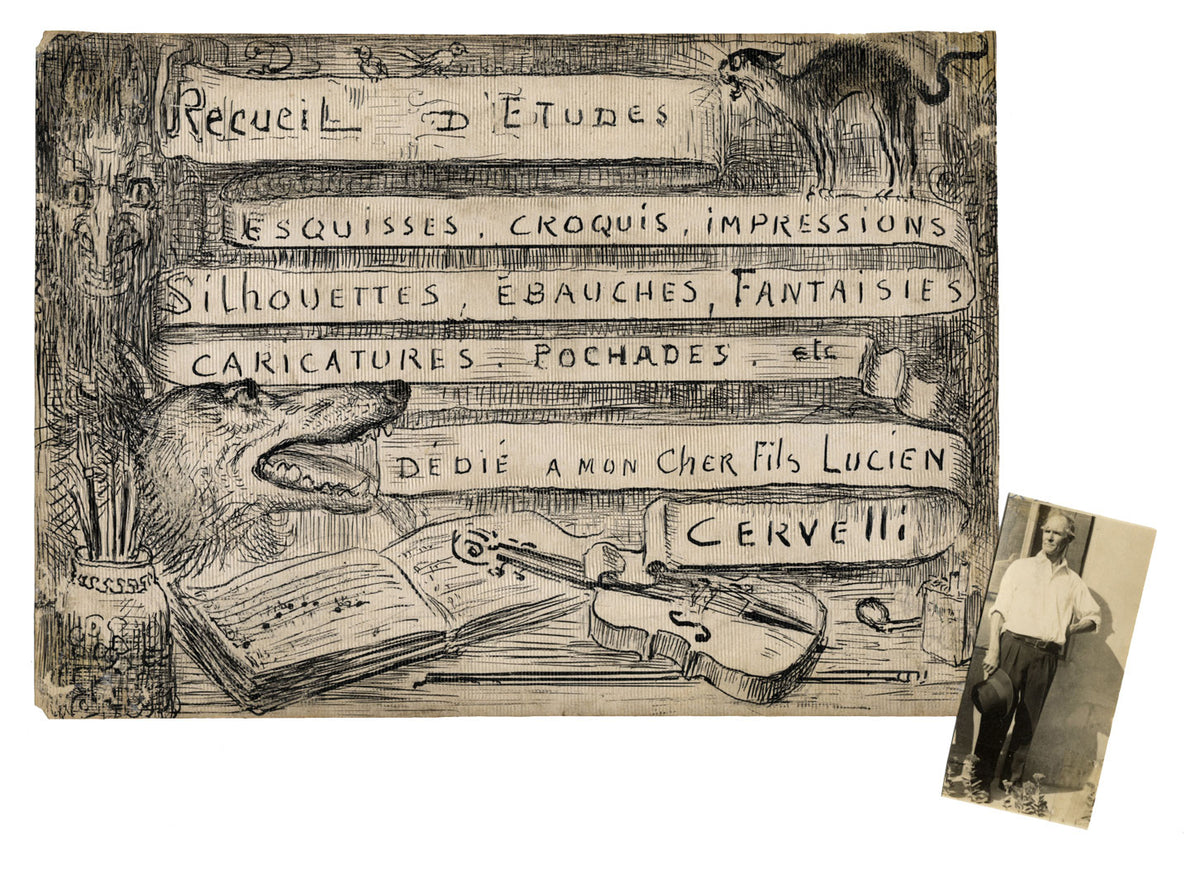 Recueil D'Etudes
ESQUISSES, CROQUIS, iMPRESSiONS
Silhouettes, ÉBAUCHES, FANTAISIES
CARICATURES. POCHADES. etc
DÉDIÉ A MON CHer Fils LUCIEN
CERVElli